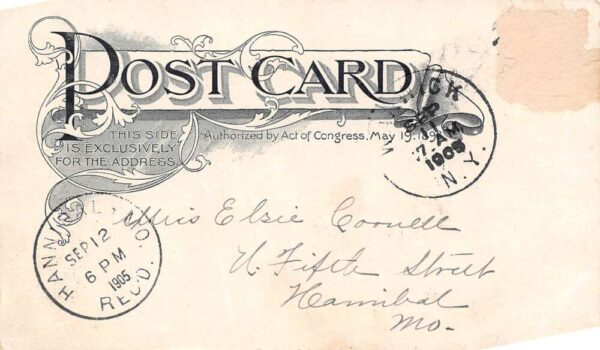 POST CARD
THIS SIDE
IS EXCLUSIVELY
FOR THE ADDRESS.
Authorized by Act of Congress, May 19, 189
CK
7 AM
1905
N.Y.
HANNIBAL, MO.
SEP 12
6 PM
1905
REC'D.
Miss Elsie Cornell
Fifth Street
Hannibal
Mo.